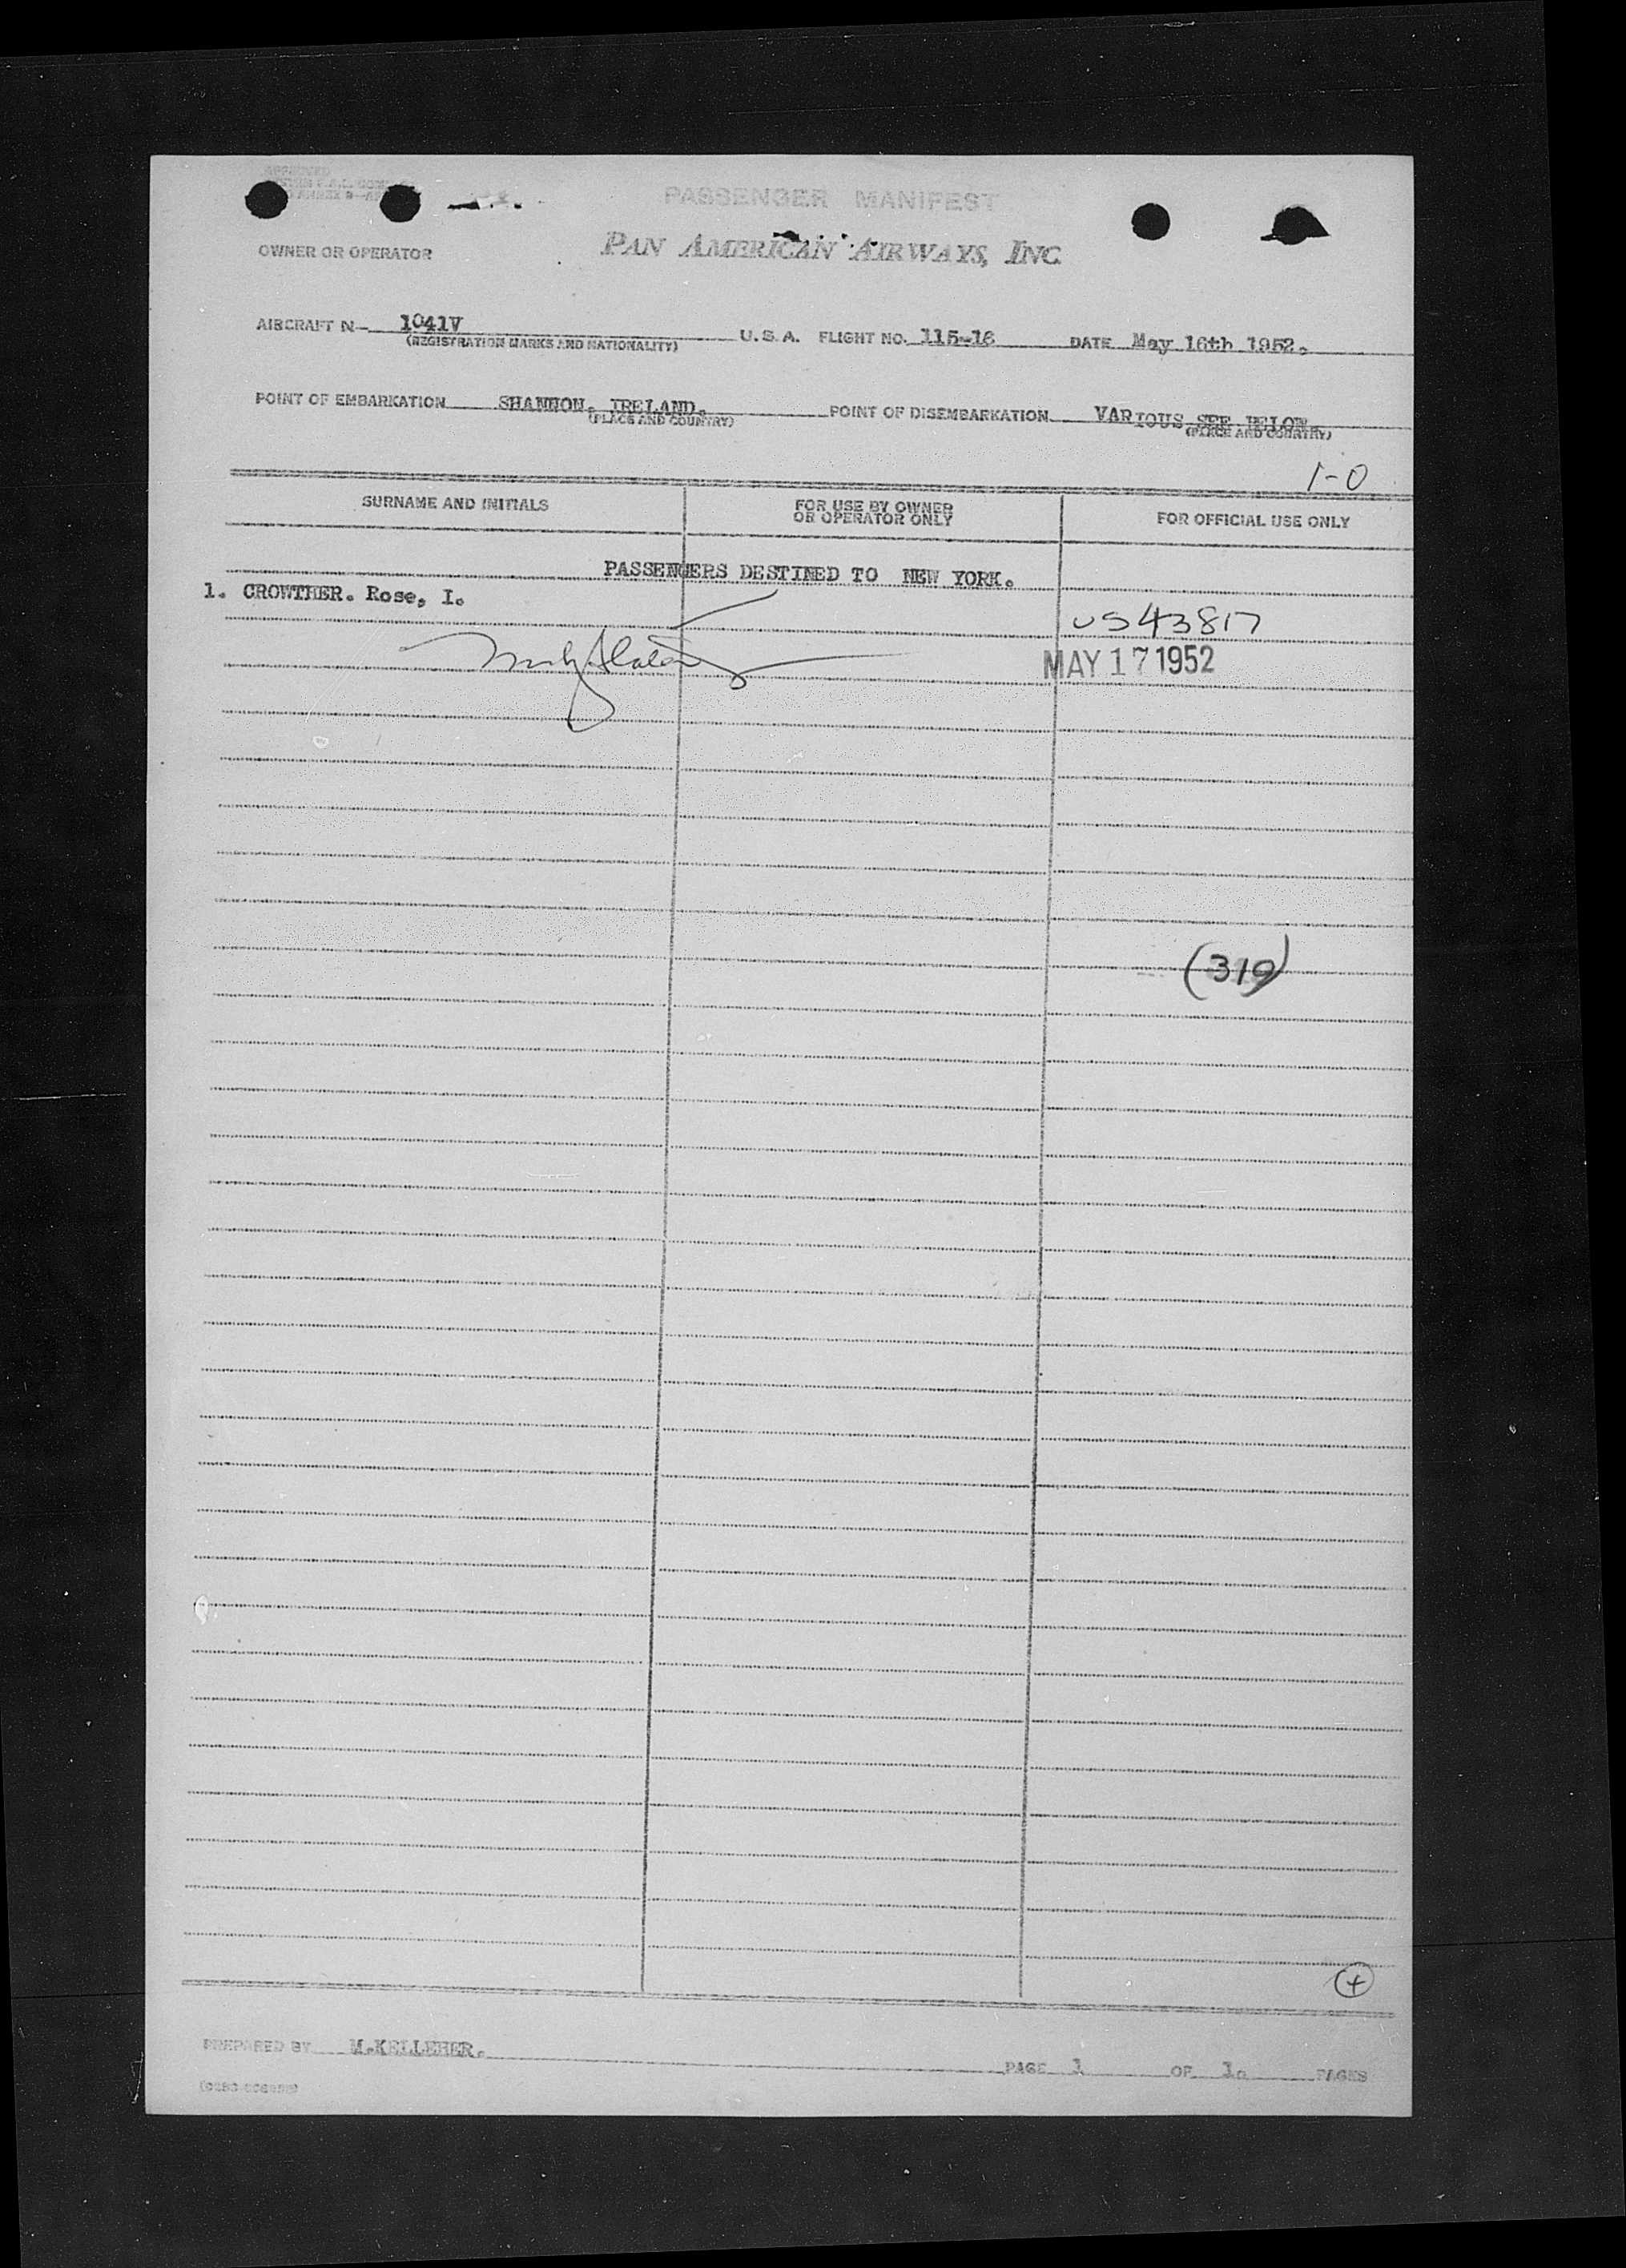 APPROVED
PASSENGER MANIFEST
OWNER OR OPERATOR PAN AMERICAN AIRWAYS, INC.
AIRCRAFT N- 1041V U.S.A. FLIGHT NO. 115-16 DATE May 16th 1952.
(REGISTRATION MARKS AND NATIONALITY)
POINT OF EMBARKATION SHANNON. IRELAND. POINT OF DISEMBARKATION VARIOUS SEE BELOW.
(PLACE AND COUNTRY) (PLACE AND COUNTRY)
1-0
SURNAME AND INITIALS FOR USE BY OWNER OR OPERATOR ONLY FOR OFFICIAL USE ONLY
PASSENGERS DESTINED TO NEW YORK.
1. CROWTHER. Rose, I.
US 43817
MAY 17 1952
(319)
+
PREPARED BY M.KELLEHER. PAGE 1 OF 1. PAGES